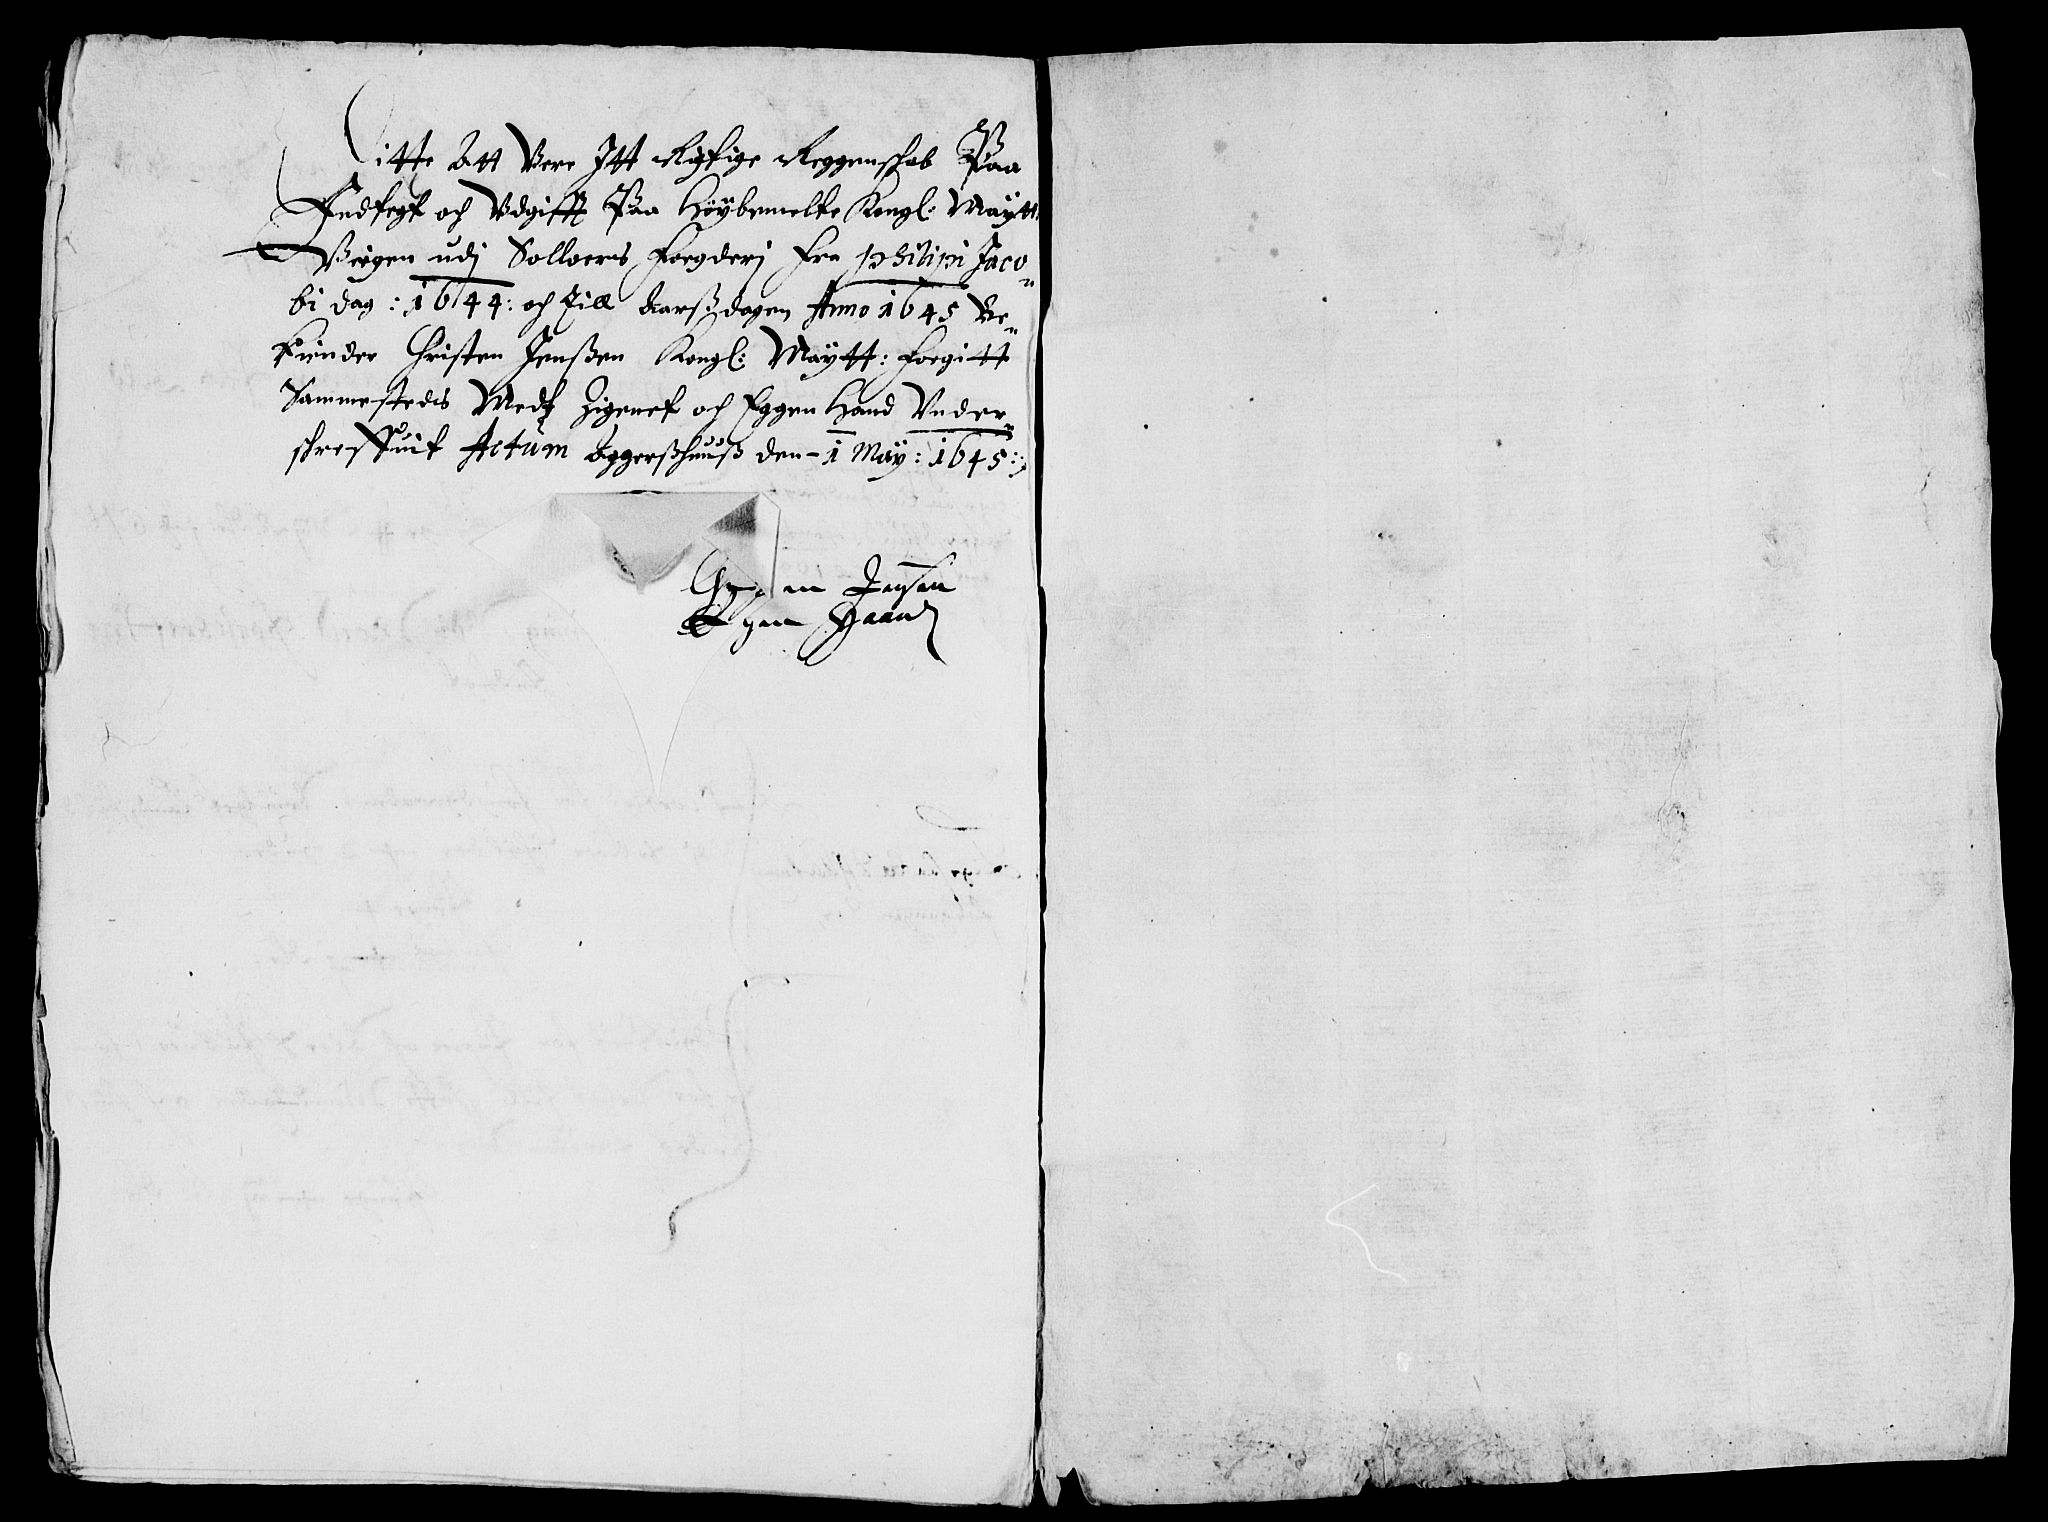 Ditte Att Were Itt Rigtige Reggenschab Paa
Indtegt och Vdgifft Paa Høÿbemelte Kongl: Maÿtt:
Wegen udj Solloers Foegderj Fra philipi Jaco
bi dag : 1644 : och till Aarsdagen Anno 1645 Be
kiender Christen Jenßen Kongl: Maÿtt: Foegitt
Sammestedis Medt Zigenet och Eggen Hand Vnder
schreffuit Actum Aggerßhuuß den 1 Maÿ : 1645 :
Christen Jensen
Egen Haand